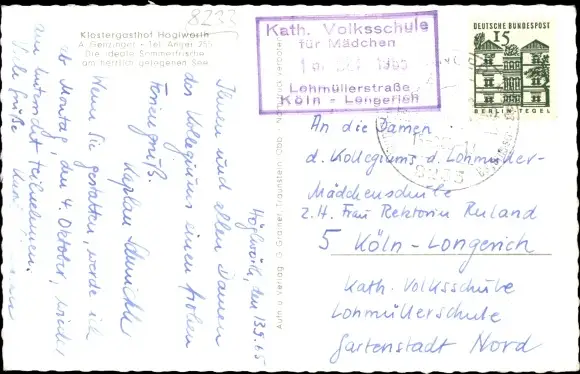 8233
Klostergasthof Höglwörth
A. Genzinger · Tel. Anger 255
Die ideale Sommerfrische
am herrlich gelegenen See
Höglwörth, den 13.9.65
Ihnen und allen Damen
des Kollegiums einen frohen
Feriengruß.
Kaplan
Wenn Sie gestatten, werde ich
ab Montag, den 4. Oktober, wieder
am Unterricht teilnehmen.
Viele Grüße
G. Grainer, Traunstein Obb.
Kath. Volksschule
für Mädchen
1965
Lohmüllerstraße
Köln - Longerich
DEUTSCHE BUNDESPOST
15
BERLIN-TEGEL
8233
An die Damen
d. Kollegiums d. Lohmüller-
Mädchenschule
z.H. Frau Rektorin Ruland
5 Köln - Longerich
Kath. Volksschule
Lohmüllerschule
Gartenstadt Nord